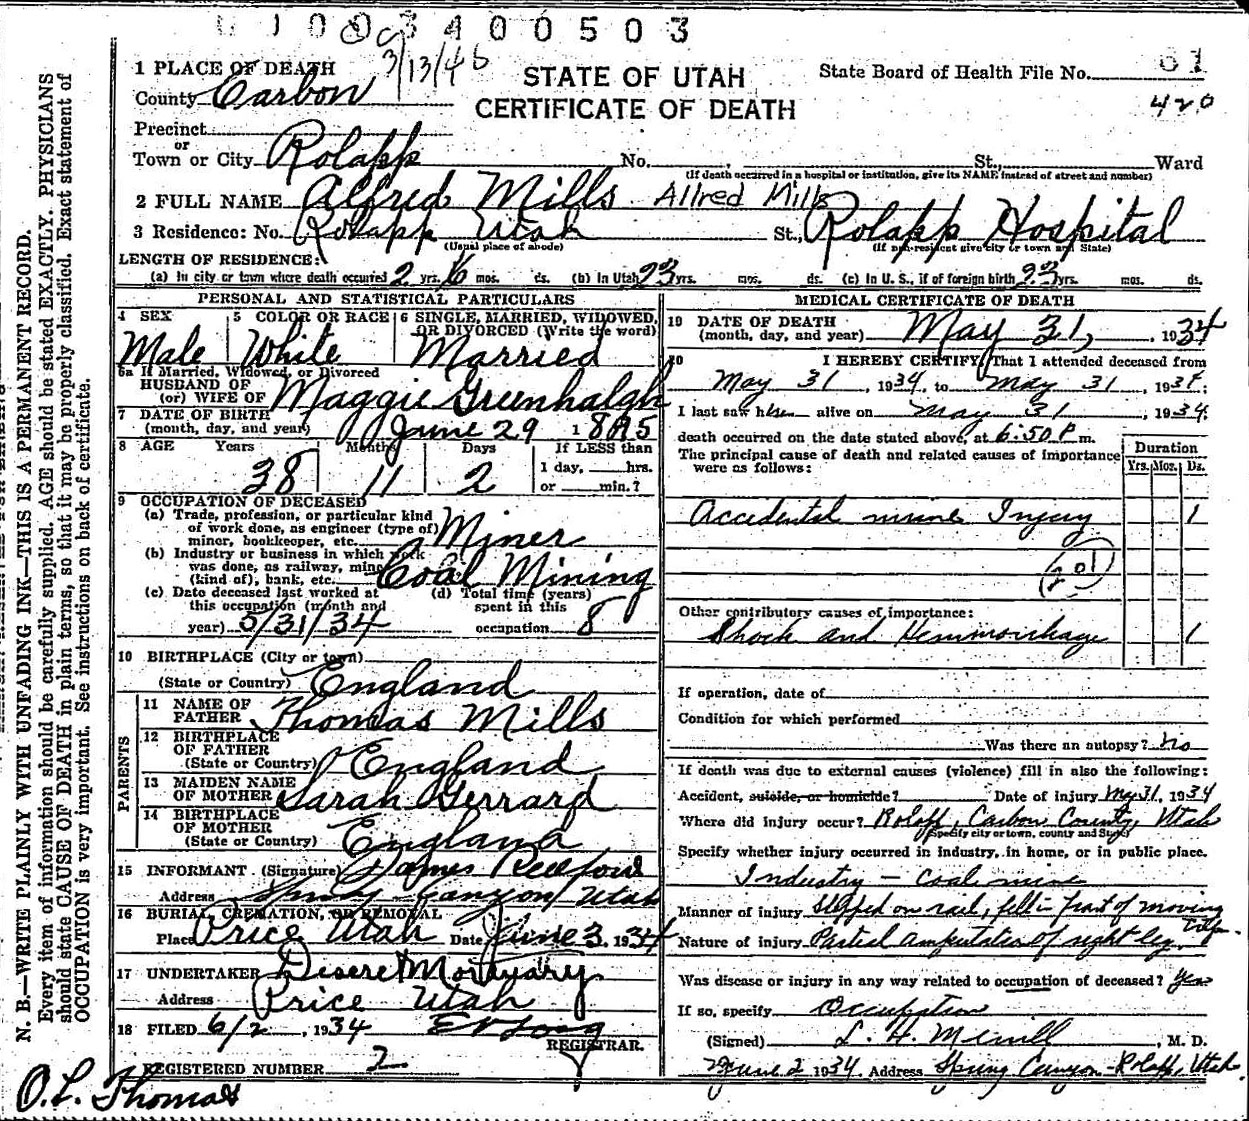 003400503
3/13/46
1 PLACE OF DEATH
STATE OF UTAH
CERTIFICATE OF DEATH
State Board of Health File No. 61
420
County Carbon
Precinct
or
Town or City Rolapp No. , St., Ward
(If death occurred in a hospital or institution, give its NAME instead of street and number)
2 FULL NAME Alfred Mills Alfred Mills
3 Residence: No. Rolapp Utah St., Rolapp Hospital
(Usual place of abode) (If non-resident give city or town and State)
LENGTH OF RESIDENCE:
(a) In city or town where death occurred 2 yrs. 6 mos. ds. (b) In Utah 23 yrs. mos. ds. (c) In U. S., if of foreign birth 23 yrs. mos. ds.
PERSONAL AND STATISTICAL PARTICULARS
4 SEX Male
5 COLOR OR RACE White
6 SINGLE, MARRIED, WIDOWED, OR DIVORCED (Write the word) Married
6a If Married, Widowed, or Divorced
HUSBAND OF
(or) WIFE OF Maggie Greenhalgh
7 DATE OF BIRTH
(month, day, and year) June 29 1895
8 AGE Years Months Days If LESS than
38 11 2 1 day, hrs.
or min.?
9 OCCUPATION OF DECEASED
(a) Trade, profession, or particular kind
of work done, as engineer (type of)
miner, bookkeeper, etc. Miner
(b) Industry or business in which work
was done, as railway, mine
(kind of), bank, etc. Coal Mining
(c) Date deceased last worked at
this occupation (month and
year) 5/31/34
(d) Total time (years)
spent in this
occupation 8
10 BIRTHPLACE (City or town)
(State or Country) England
PARENTS
11 NAME OF
FATHER Thomas Mills
12 BIRTHPLACE
OF FATHER
(State or Country) England
13 MAIDEN NAME
OF MOTHER Sarah Gerrard
14 BIRTHPLACE
OF MOTHER
(State or Country) England
15 INFORMANT (Signature) James Redford
Address Canyon Utah
16 BURIAL, CREMATION, OR REMOVAL
Place Price Utah Date June 3, 1934
17 UNDERTAKER Deseret Mortuary
Address Price Utah
18 FILED 6/2, 1934
REGISTRAR.
REGISTERED NUMBER 2
MEDICAL CERTIFICATE OF DEATH
19 DATE OF DEATH
(month, day, and year) May 31, 1934
20 I HEREBY CERTIFY, That I attended deceased from
May 31, 1934, to May 31, 1934;
I last saw him alive on May 31, 1934;
death occurred on the date stated above, at 6:50 P m.
The principal cause of death and related causes of importance
were as follows:
Duration
Yrs. Mos. Ds.
Accidental mine Injury 1
(201)
Other contributory causes of importance:
Shock and Hemmorrhage 1
If operation, date of
Condition for which performed
Was there an autopsy? No
If death was due to external causes (violence) fill in also the following:
Accident, suicide, or homicide? Date of injury May 31, 1934
Where did injury occur? Rolapp, Carbon County, Utah
(Specify city or town, county and State)
Specify whether injury occurred in industry, in home, or in public place.
Industry - Coal mine
Manner of injury Slipped on rail, fell in front of moving
Nature of injury Partial amputation of right leg
Was disease or injury in any way related to occupation of deceased? Yes
If so, specify Occupation
(Signed) L. H. Merrill, M. D.
June 2 1934. Address Spring Canyon - Rolapp, Utah.
N. B.—WRITE PLAINLY WITH UNFADING INK—THIS IS A PERMANENT RECORD.
Every item of information should be carefully supplied. AGE should be stated EXACTLY. PHYSICIANS
should state CAUSE OF DEATH in plain terms, so that it may be properly classified. Exact statement of
OCCUPATION is very important. See instructions on back of certificate.
O. L. Thomas